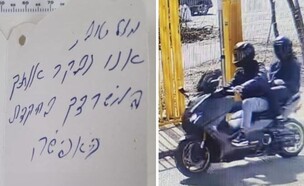 מזל טוב,
אנו נבקר אותך
במשרדך בהקדם
האפשרי